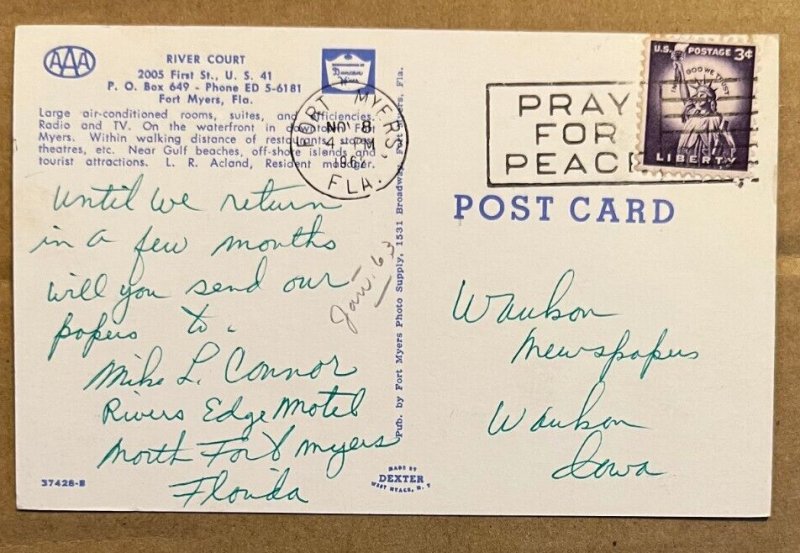 AAA
RIVER COURT
2005 First St., U. S. 41
P. O. Box 649 - Phone ED 5-6181
Fort Myers, Fla.
Large air-conditioned rooms, suites, and efficiencies.
Radio and TV. On the waterfront in downtown Fort
Myers. Within walking distance of restaurants, stores,
theatres, etc. Near Gulf beaches, off-shore islands and
tourist attractions. L. R. Acland, Resident manager.
Duncan
Hines
FORT MYERS
NOV 8
4 PM
1962
FLA.
PRAY
FOR
PEACE
U.S. POSTAGE 3¢
IN GOD WE TRUST
LIBERTY
POST CARD
Until we return
in a few months
will you send our
papers to.
Mike L. Connor
Rivers Edge Motel
North Fort Myers
Florida
Jan. 63
Pub. by Fort Myers Photo Supply, 1531 Broadway, Fort Myers, Fla.
Waukon
Newspapers
Waukon
Iowa
37428-B
MADE BY
DEXTER
WEST NYACK, N. Y.